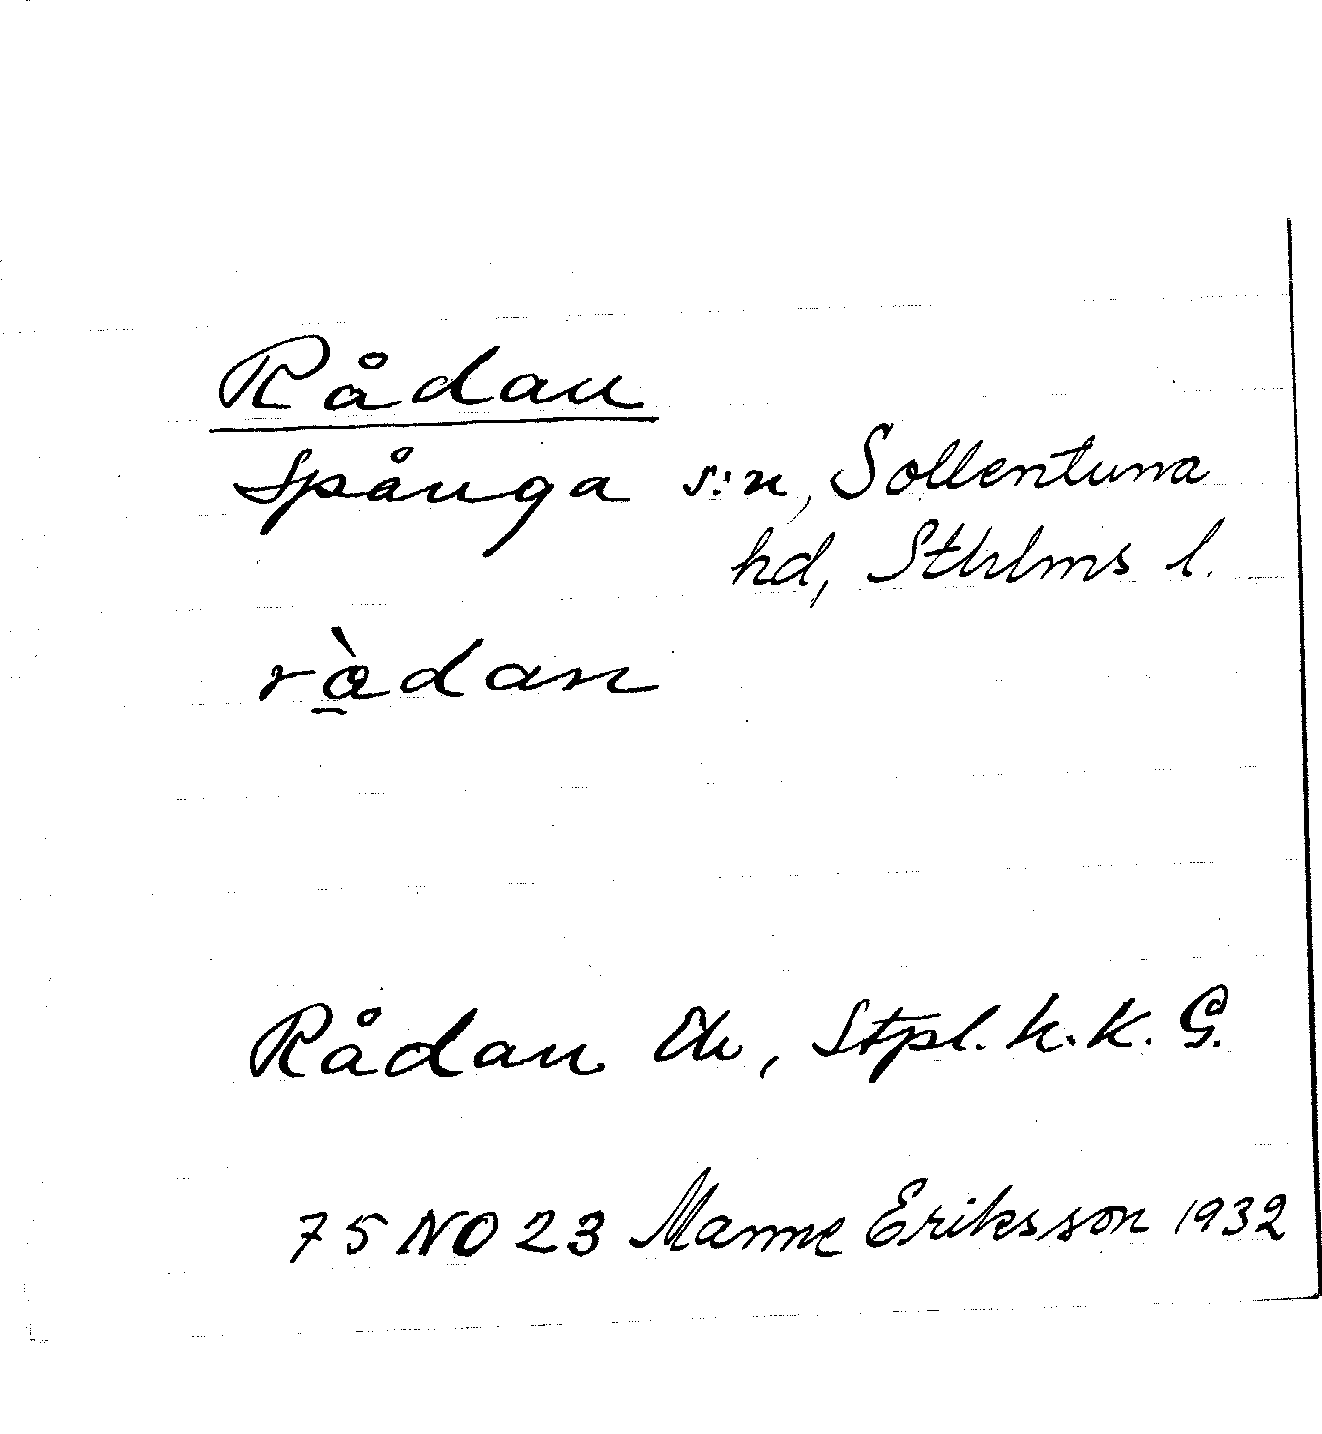 Rådan
Spånga s:n, Sollentuna
hd, Sthlms l.
rå̱̀dan
Rådan Ek, Stpl. k. K. G.
75 NO 23 Manne Eriksson 1932